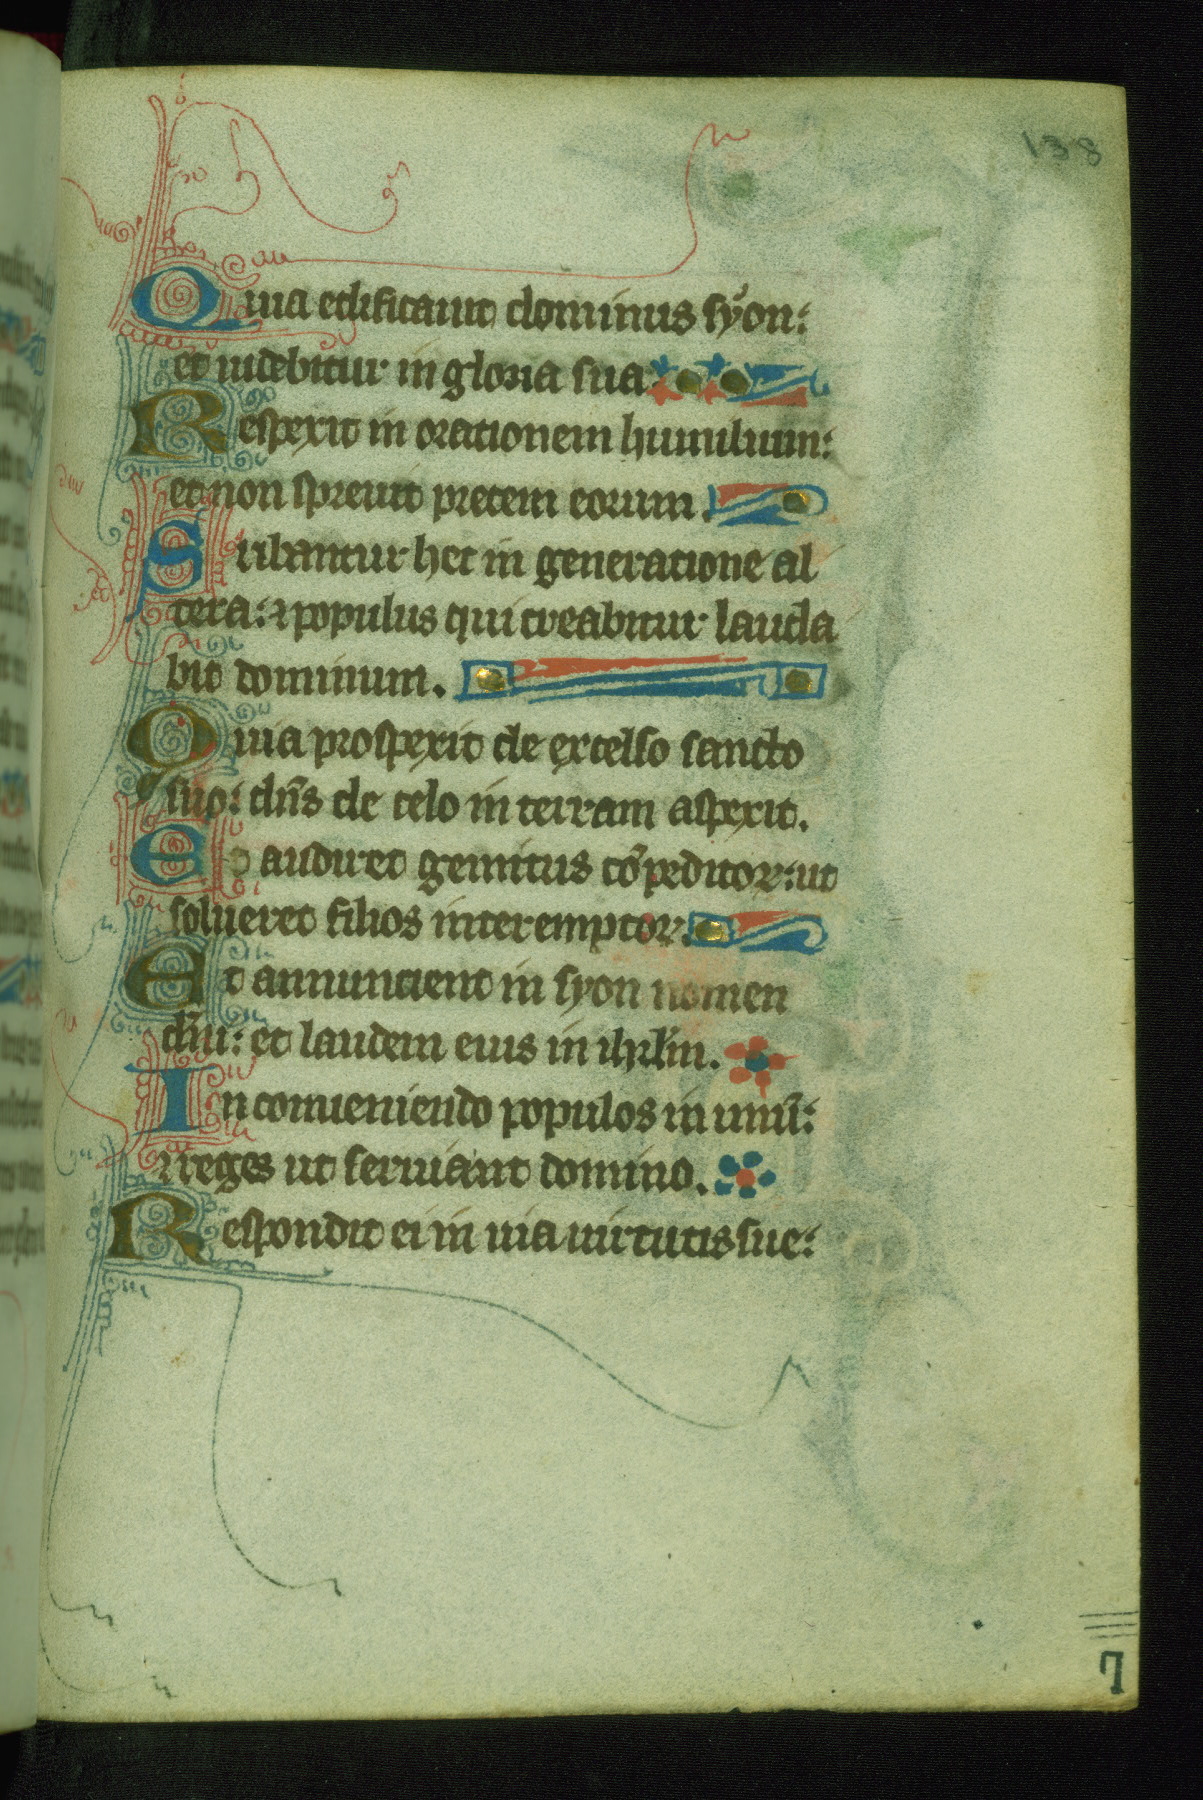 138
Quia edificauit dominus sẏon:
et uidebitur in gloria sua
Respexit in orationem humilium:
et non spreuit precem eorum.
Scribantur hec in generatione al
tera: ⁊ populus qui creabitur lauda
bit dominum.
Quia prospexit de excelso sancto
suo: dn̄s de celo in terram aspexit.
Et audiret gemitus cōpeditoꝝ: ut
solueret filios interemptoꝝ.
Et annuncient in syon nomen
dn̄i: et laudem eius in ihrl̄m.
In conueniendo populos in unū:
⁊ reges ut seruiant domino.
Respondit ei in uia uirtutis sue:
7